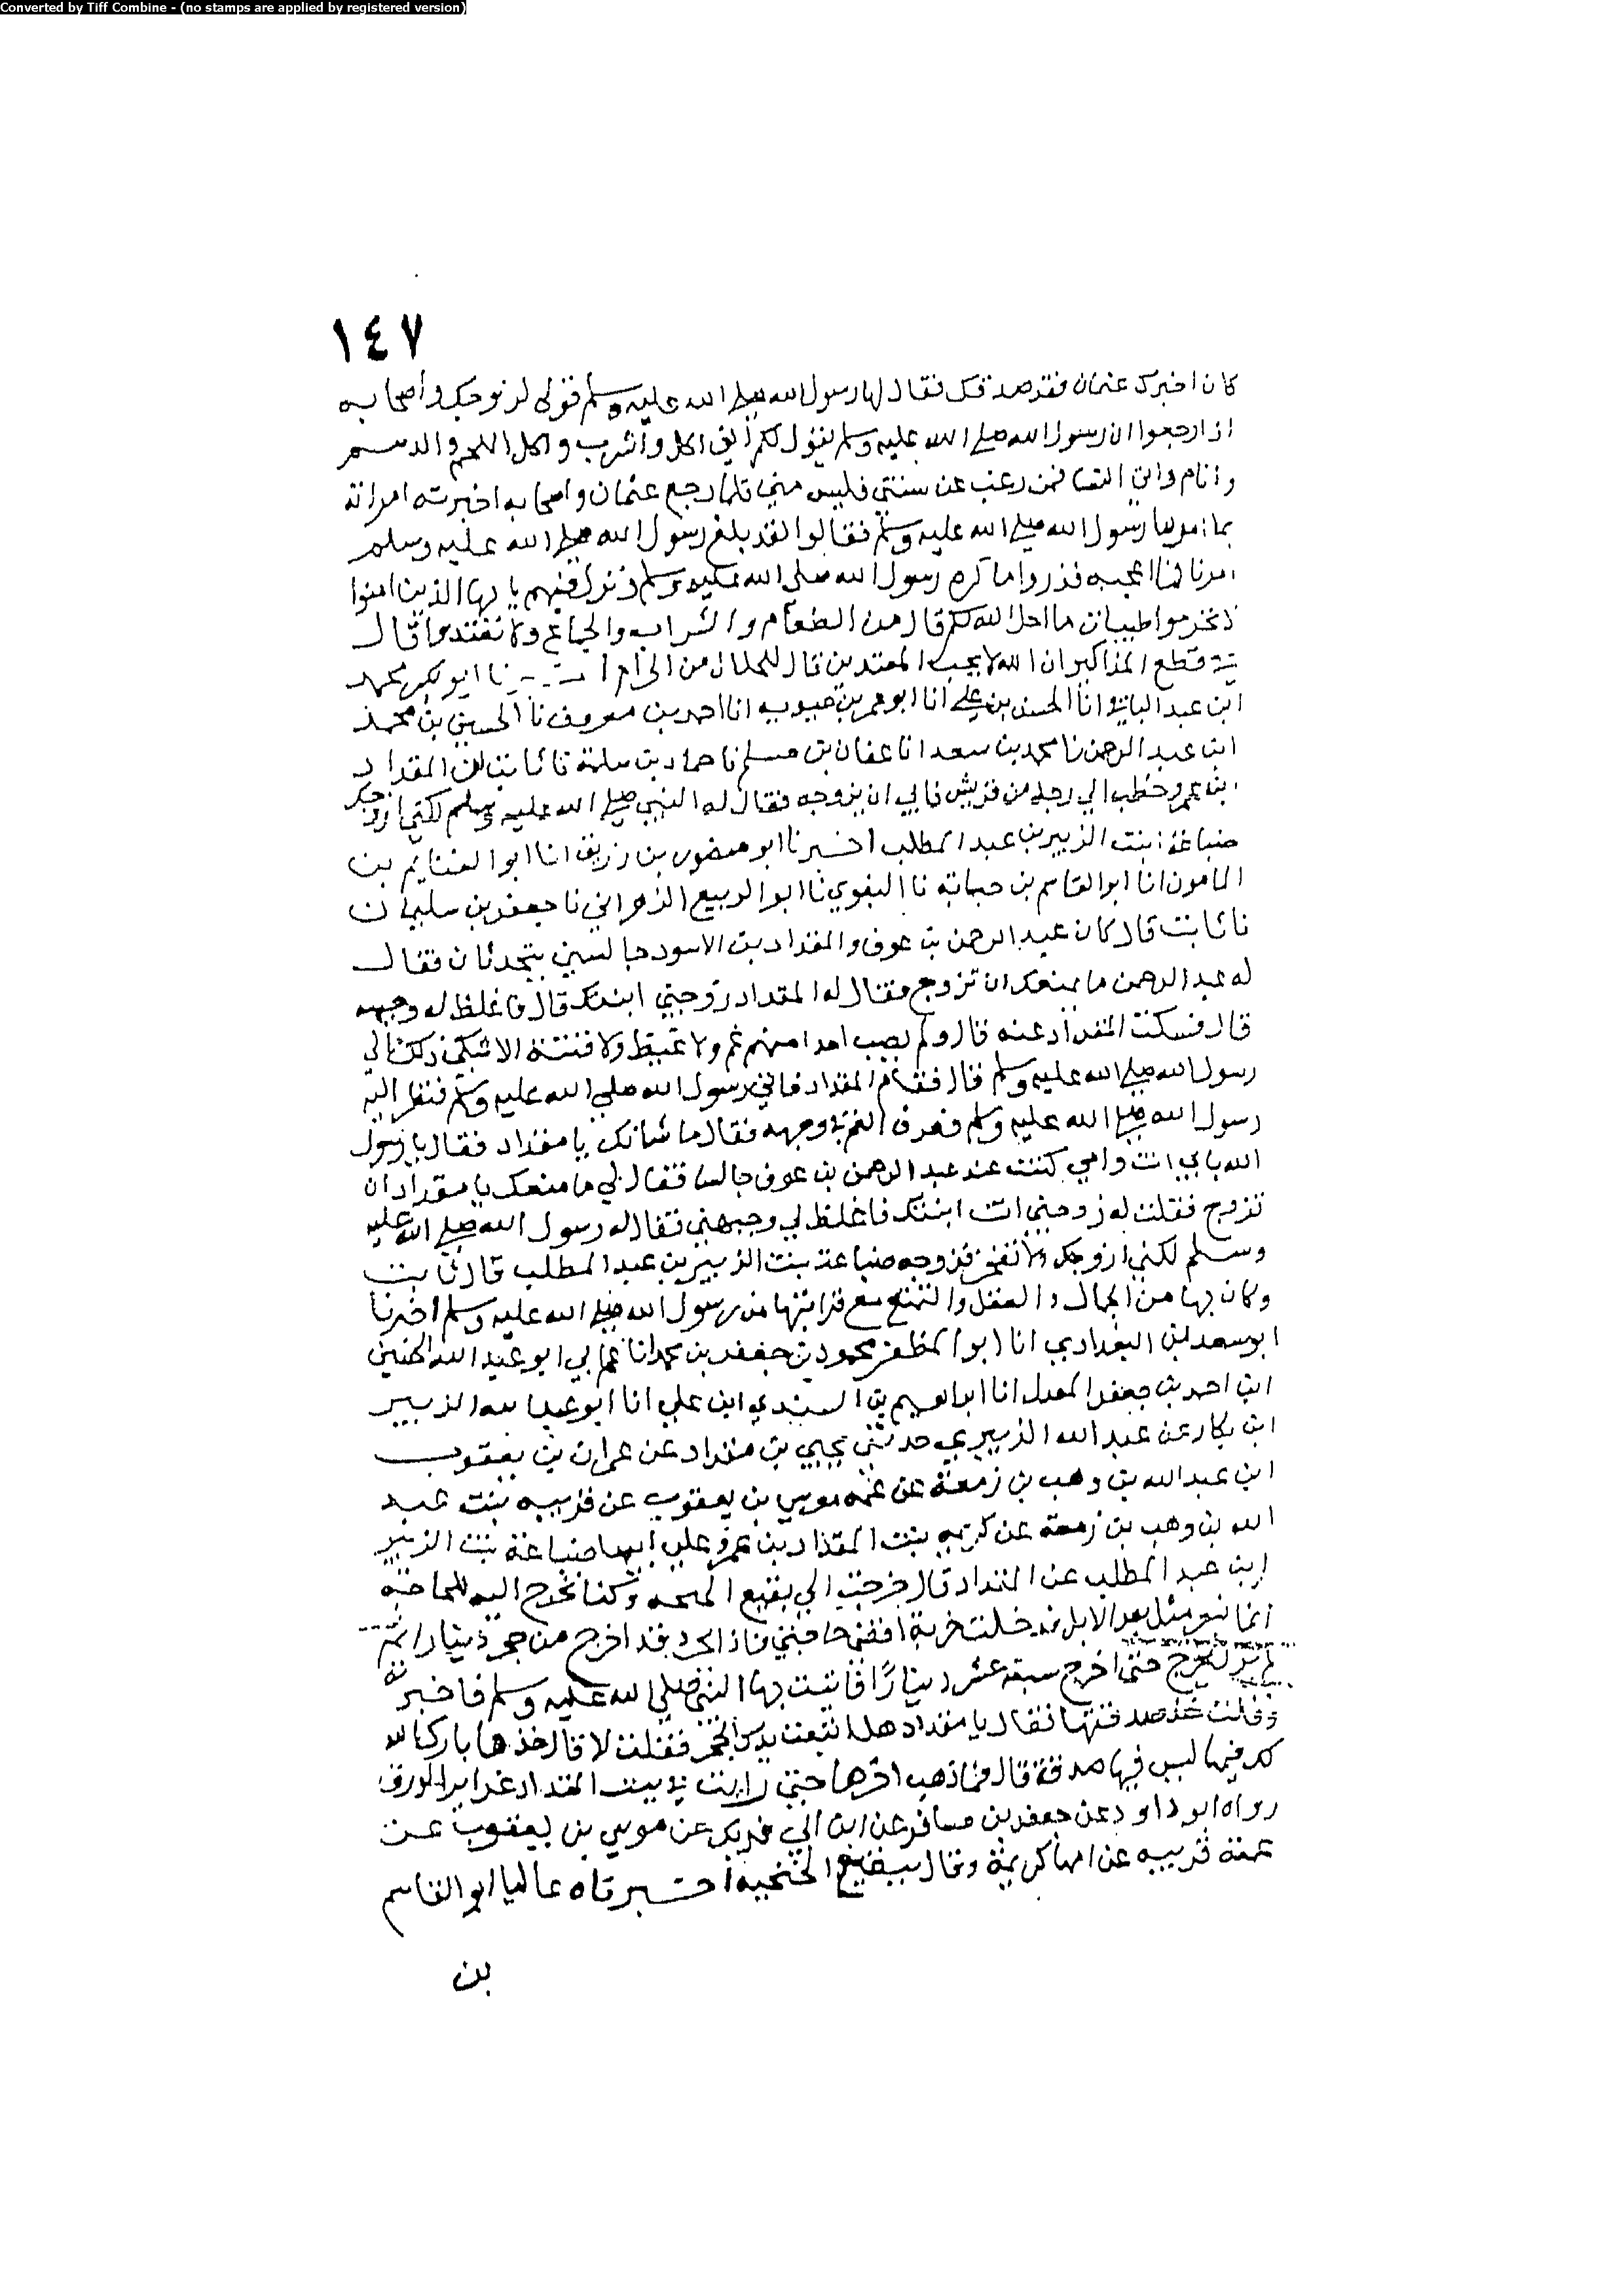 Converted by Tiff Combine - (no stamps are applied by registered version)
١٤٧
كان اخبرك عثمان فقد صدقك فقال لها رسول الله صلى الله عليه وسلم قولي لزوجك وأصحابه
اذا رجعوا ان رسول الله صلى الله عليه وسلم يقول لكم اني اكل واشرب واكل اللحم والدسم
وانام واتي النسا فمن رغب عن سنتي فليس مني فلما رجع عثمان واصحابه اخبرته امراته
بما امرها رسول الله صلى الله عليه وسلم فقالوا لقد بلغ رسول الله صلى الله عليه وسلم
امرنا فما اعجبه فذروا ما كره رسول الله صلى الله عليه وسلم ونزل فيهم يا ايها الذين امنوا
لا تحرموا طيبات ما احل الله لكم قال من الطعام والشراب والجماع ولا تعتدوا قال
في قطع المذاكير ان الله لا يحب المعتدين قال للحلال من الحرام نا ابو بكر محمد
ابن عبد الباقي انا الحسن بن علي انا ابو عمر بن حيويه انا احمد بن معروف نا الحسين بن محمد
ابن عبد الرحمن نا محمد بن سعد انا عفان بن مسلم نا حماد بن سلمة نا ثابت ان المقداد
بن عمرو خطب الي رجل من قريش فابي ان يزوجه فقال له النبي صلى الله عليه وسلم لكني ازوجك
ضباعة ابنت الزبير بن عبد المطلب اخبرنا ابو منصور بن زريق انا ابو الغنايم بن
المامون انا ابو القاسم بن حبابه نا البغوي نا ابو الربيع الزهراني نا جعفر بن سليمان
نا ثابت قال كان عبد الرحمن بن عوف والمقداد بن الاسود جالسين يتحدثان فقال
له عبد الرحمن ما يمنعك ان تزوج فقال له المقداد زوجني ابنتك قال فاغلظ له وجبهه
قال فسكت المقداد عنه قال ولم يصب احدا منهم غم ولا غيظ ولا فتنة الا شكى ذلك الي
رسول الله صلى الله عليه وسلم قال فقام المقداد فاتى رسول الله صلى الله عليه وسلم فنظر اليه
رسول الله صلى الله عليه وسلم فعرف الغم في وجهه فقال ما شانك يا مقداد فقال يا رسول
الله بابي انت وامي كنت عند عبد الرحمن بن عوف جالسا فقال لي ما منعك يا مقداد ان
تزوج فقلت له زوجني انت ابنتك فاغلظ لي وجبهني فقال له رسول الله صلى الله عليه
وسلم لكني ازوجك ولا تفخر فزوجه ضباعة بنت الزبير بن عبد المطلب قال ثابت
وكان بها من الجمال والعقل والتمتع مع قرابتها من رسول الله صلى الله عليه وسلم اخبرنا
ابو سعد بن البغدادي انا ابو المظفر محمود بن جعفر بن محمد انا عم ابي ابو عبد الله الحسين
ابن احمد بن جعفر المعدل انا ابراهيم بن السندي ابن علي انا ابو عبد الله الزبير
ابن بكار عن عبد الله الزبيري حدثني يحيي بن مقداد عن عمران بن يعقوب
ابن عبد الله بن وهب بن زمعة عن عمه موسى بن يعقوب عن قريبه بنت عبد
الله بن وهب بن زمعة عن كريمه بنت المقداد بن عمرو عن امها ضباعة بنت الزبير
ابن عبد المطلب عن المقداد قال خرجت الي بقيع وكنا نخرج اليه للحاجة
انما نبعر مثل بعر الابل فدخلت خربة اقضي حاجتي فاذا جرد قد اخرج من جحر دينارا ثم
لم يزل يخرج حتى اخرج سبعة عشر دينارًا فاتيت بها النبي صلى الله عليه وسلم فاخبرته
وقلت خذ صدقتها فقال يا مقداد هل اتبعت يدك الجحر فقلت لا قال خذها بارك الله
لك فيها ليس فيها صدقة قال فما ذهب اخرها حتى رايت في بيت المقداد غراير الورق
رواه ابو داود عن جعفر بن مسافر عن ابن ابي فديك عن موسى بن يعقوب عن
عمته قريبه عن امها كريمة وقال ببقيع الخبخبه اخبرناه عاليا ابو القاسم
بن